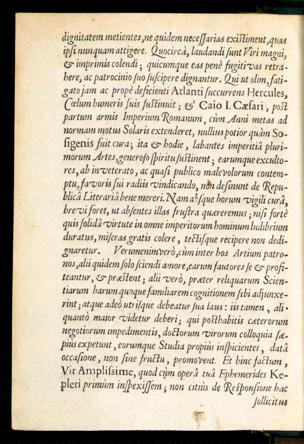 dignitatem metientes, ne quidem necessarias existiment, quas
ipsi nunquam attigere. Quocircà, laudandi sunt Viri magni,
& imprimis colendi; quicumque eas penè fugitivas retra-
here, ac patrocinio suo suscipere dignantur. Qui ut olim, fati-
gato jam ac propè deficienti Atlanti succurrens Hercules,
Cœlum humeris suis sustinuit; & Caio I. Cæsari, post
partum armis Imperium Romanum, cùm Anni metas ad
normam motus Solaris extenderet, nullius potior quàm So-
sigenis fuit cura; ita & hodie, labantes imperitiâ pluri-
morum Artes, generoso spiritu sustinent; earumque exculto-
res, ab inveterato, ac quasi publico malevolorum contem-
ptu, favoris sui radiis vindicando, non desinunt de Repu-
blicâ Literariâ bene mereri. Nam absque horum vigili curâ,
brevi foret, ut absentes illas frustra quæreremus; nisi fortè
quis solidâ virtute in omne imperitorum hominum ludibrium
duratus, miseras gratis colere, tectisque recipere non dedi-
gnaretur. Verumenimverò, cùm inter hos Artium patro-
nos, alii quidem solo sciendi amore, earum fautores se & profi-
teantur, & præstent; alii verò, præter reliquarum Scien-
tiarum harum quoque familiarem cognitionem sibi adjunxe-
rint; atque adeò utrisque debeatur sua laus: iis tamen, ali-
quantò maior videtur deberi; qui posthabitis cæterorum
negotiorum impedimentis, doctorum virorum colloquia sæ-
piùs expetunt, eorumque Studia propiùs inspicientes, datâ
occasione, non sine fructu, promovent. Et hinc factum,
Vir Amplissime, quod cùm operâ tuâ Ephemerides Ke-
pleri primùm inspexissem; non citiùs de Responsione hac
sollicitus